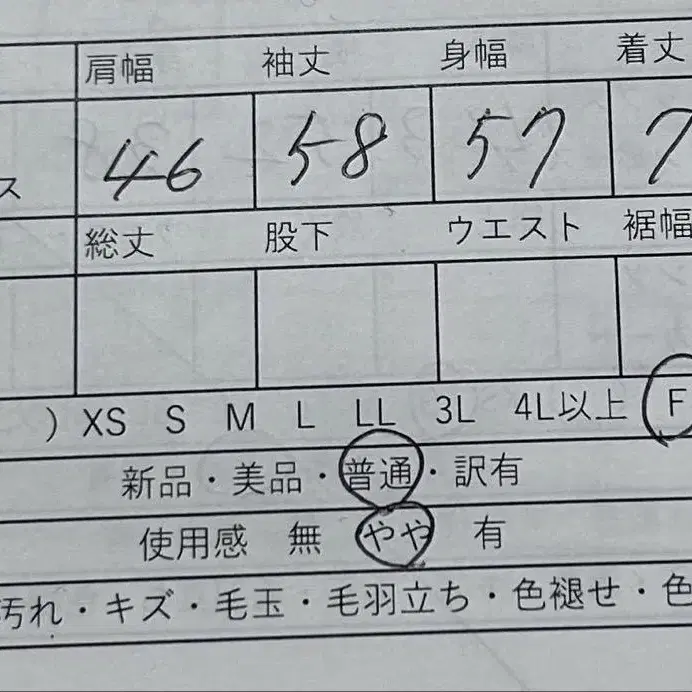 肩幅 袖丈 身幅 着丈
ス 46 58 57 7
総丈 股下 ウエスト 裾幅
) XS S M L LL 3L 4L以上 F
新品・美品・普通・訳有
使用感 無 やや 有
汚れ・キズ・毛玉・毛羽立ち・色褪せ・色